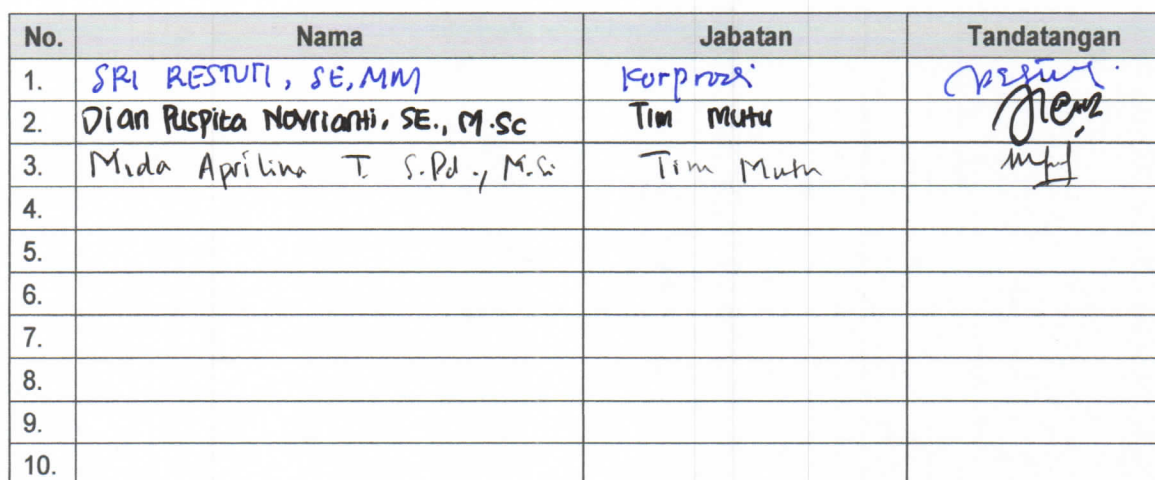 No. Nama Jabatan Tandatangan
1. SRI RESTUTI, SE, MM Korprodi
2. Dian Puspita Novrianti, SE., M.Sc Tim Mutu
3. Mida Aprilina T. S.Pd., M.Si Tim Mutu
4.
5.
6.
7.
8.
9.
10.